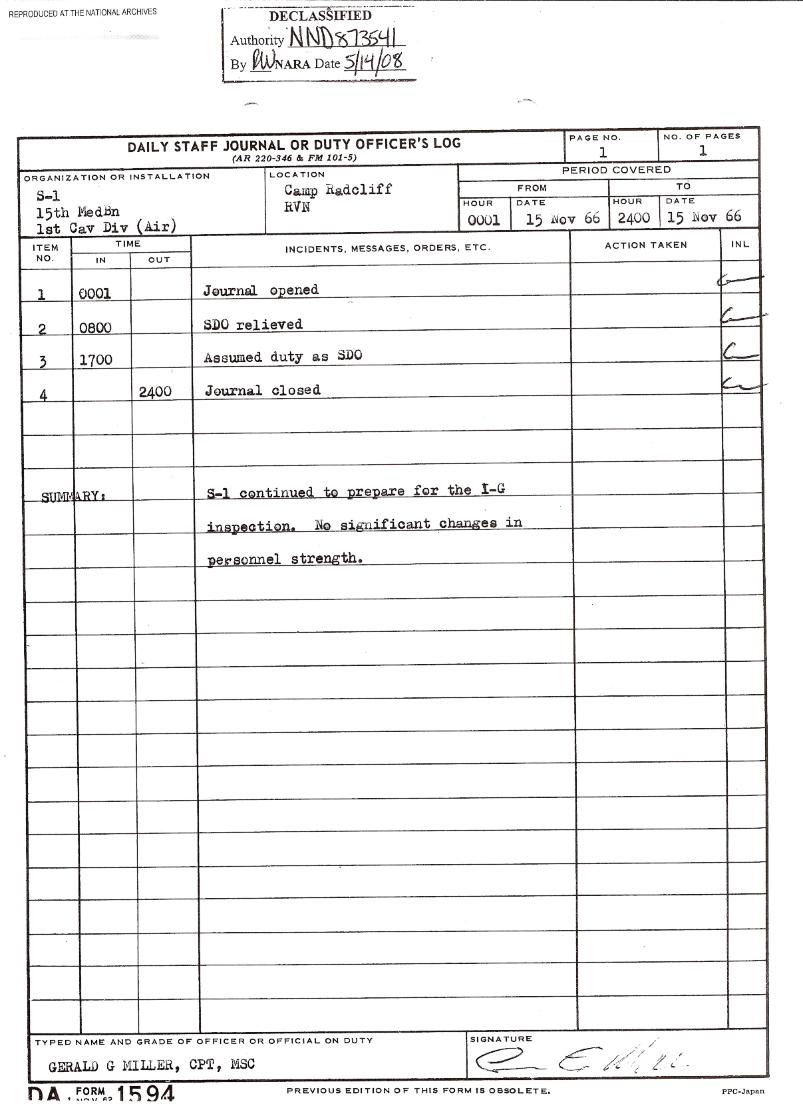 REPRODUCED AT THE NATIONAL ARCHIVES
DECLASSIFIED
Authority NND873541
By NARA Date 5/14/08
DAILY STAFF JOURNAL OR DUTY OFFICER'S LOG
(AR 220-346 & FM 101-5)
PAGE NO.
1
NO. OF PAGES
1
ORGANIZATION OR INSTALLATION
S-1
15th MedBn
1st Cav Div (Air)
LOCATION
Camp Radcliff
RVN
PERIOD COVERED
FROM TO
HOUR DATE HOUR DATE
0001 15 Nov 66 2400 15 Nov 66
ITEM NO. TIME INCIDENTS, MESSAGES, ORDERS, ETC. ACTION TAKEN INL
IN OUT
1 0001 Journal opened
2 0800 SDO relieved
3 1700 Assumed duty as SDO
4 2400 Journal closed
SUMMARY: S-1 continued to prepare for the I-G
inspection. No significant changes in
personnel strength.
TYPED NAME AND GRADE OF OFFICER OR OFFICIAL ON DUTY
GERALD G MILLER, CPT, MSC
SIGNATURE
DA FORM 1594
1 NOV 62
PREVIOUS EDITION OF THIS FORM IS OBSOLETE.
PPC-Japan